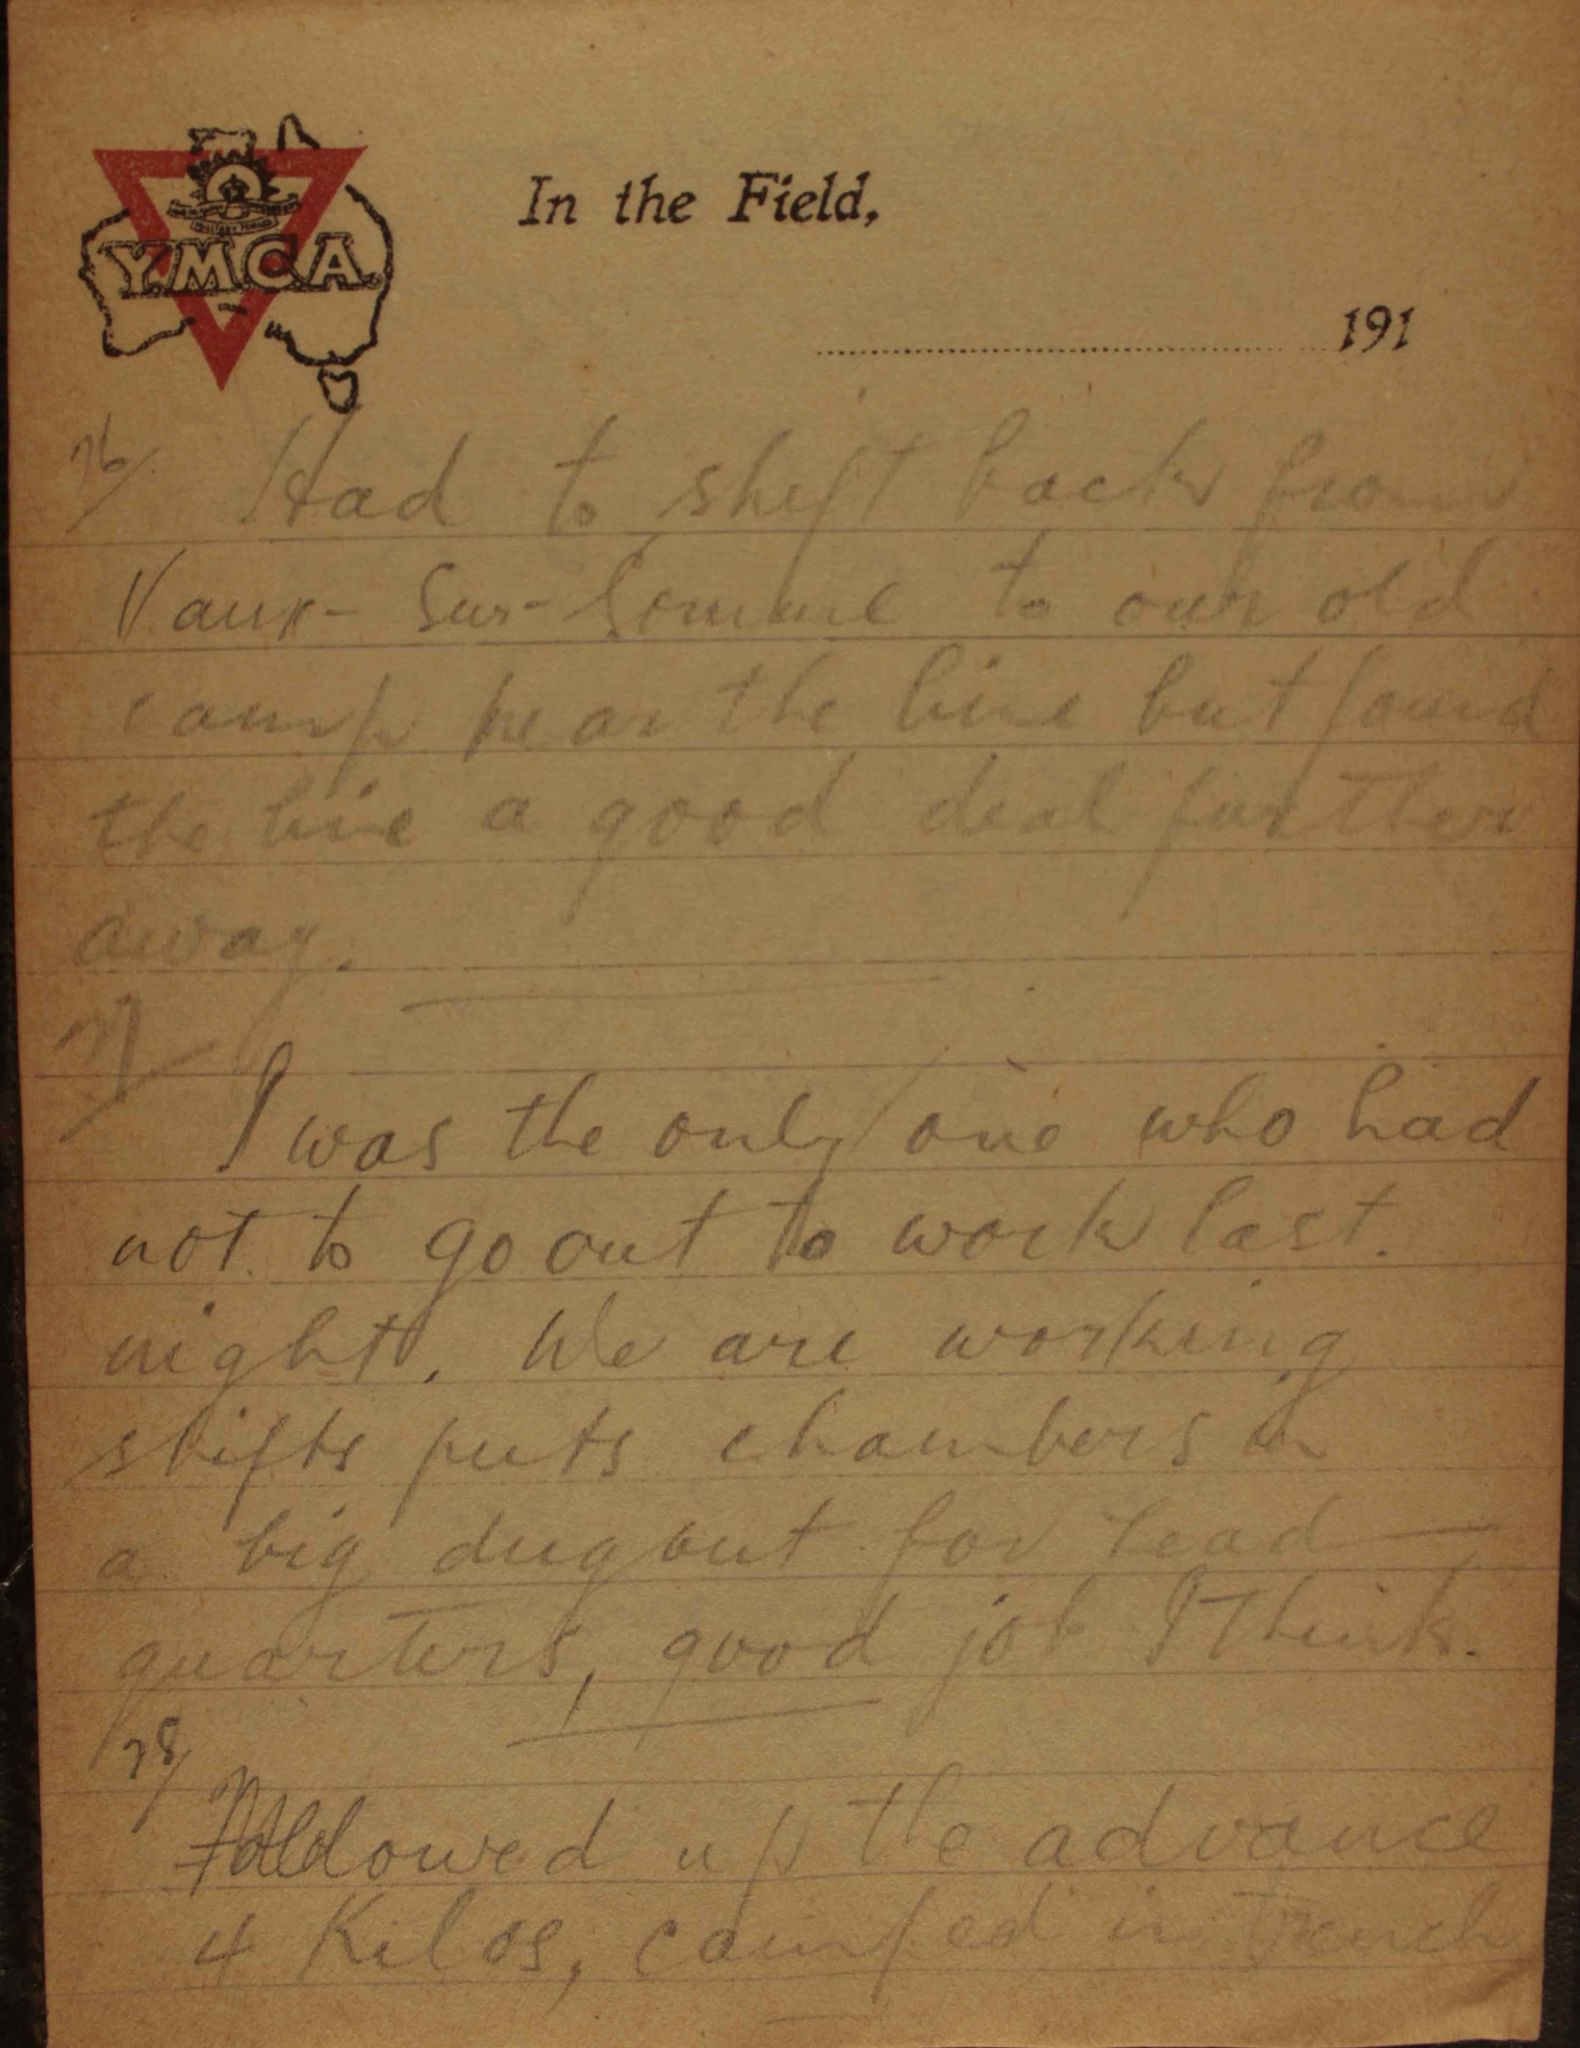 Y.M.C.A.
In the Field,
191
26/. Had to shift back from
Vaux- Sur- Somme to our old
camp near the line but found
the line a good deal further
away.
27/
I was the only one who had
not to go out to work last.
night. We are working
shifts puts chambers in
a big dugout for head-
quarters, good job I think.
28/
Followed up the advance
4 Kilos, camped in trench